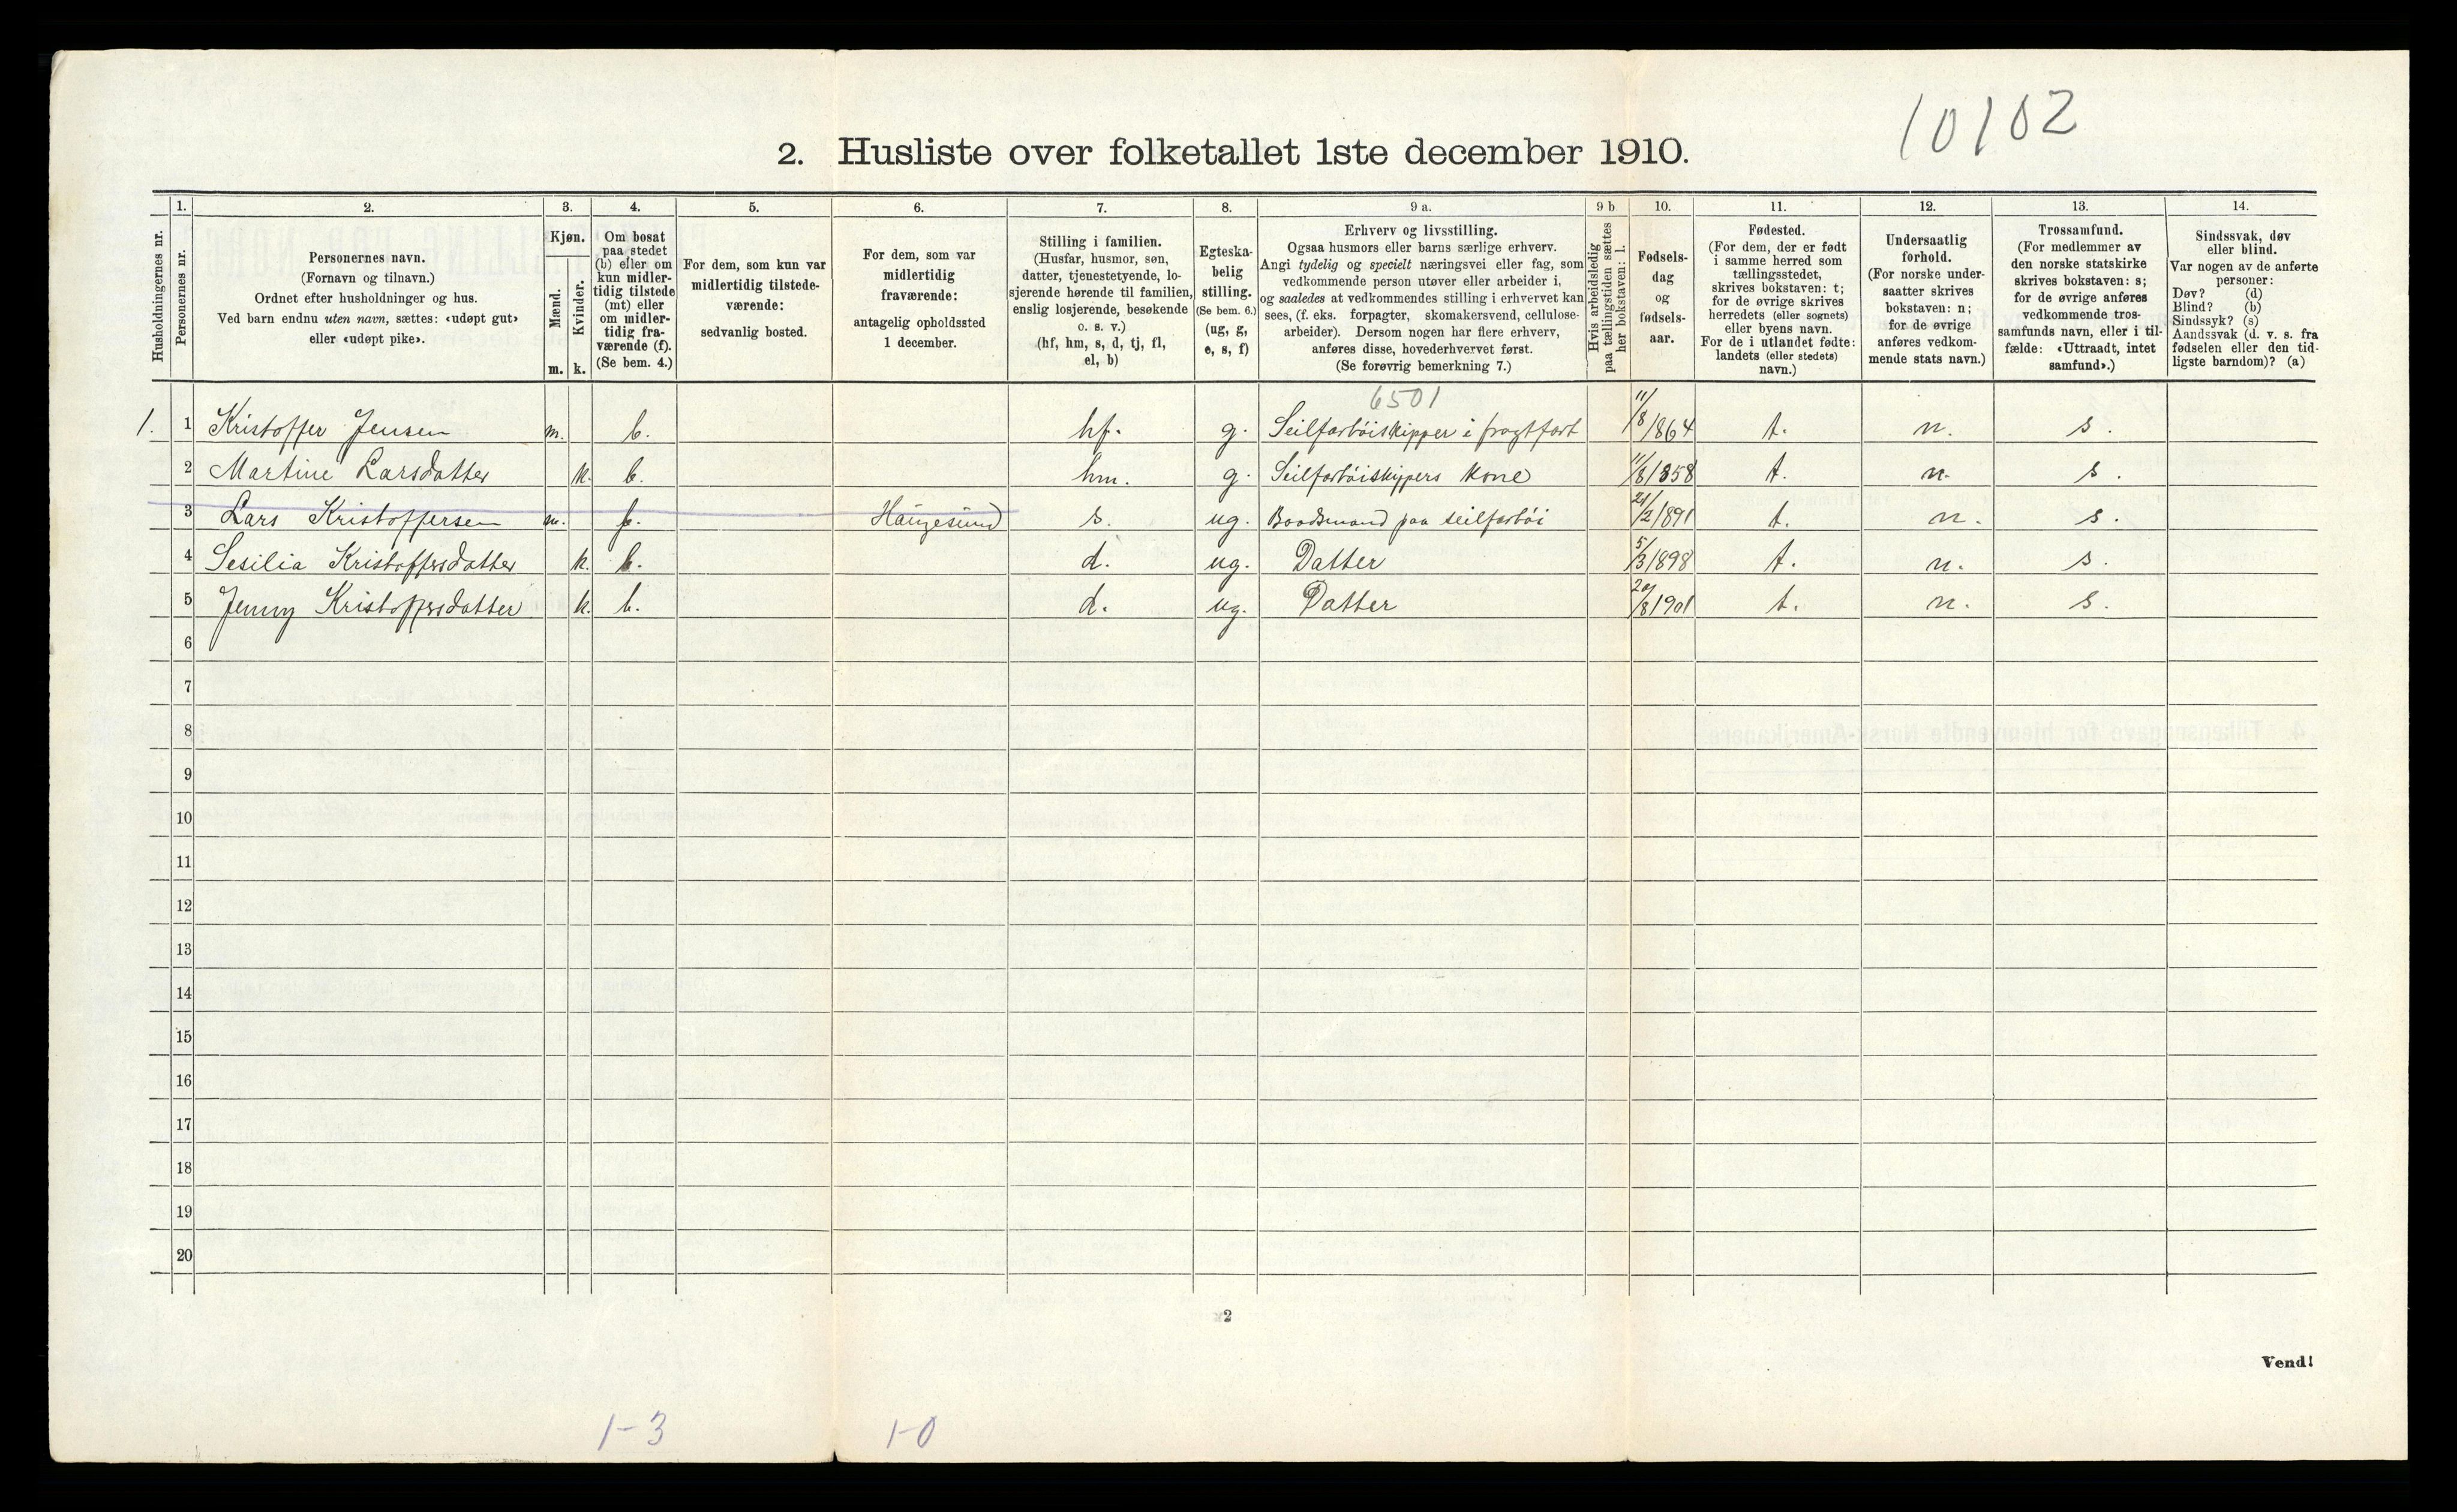 10102
2. Husliste over folketallet 1ste december 1910.
Husholdningernes nr.
1.
Personernes nr.
2.
Personernes navn.
(Fornavn og tilnavn.)
Ordnet efter husholdninger og hus.
Ved barn endnu uten navn, sættes: «udøpt gut»
eller «udøpt pike».
3.
Kjøn.
Mænd.
Kvinder.
m. k.
4.
Om bosat
paa stedet
(b) eller om
kun midler-
tidig tilstede
(mt) eller
om midler-
tidig fra-
værende (f).
(Se bem. 4.)
5.
For dem, som kun var
midlertidig tilstede-
værende:
sedvanlig bosted.
6.
For dem, som var
midlertidig
fraværende:
antagelig opholdssted
1 december.
7.
Stilling i familien.
(Husfar, husmor, søn,
datter, tjenestetyende, lo-
sjerende hørende til familien,
enslig losjerende, besøkende
o. s. v.)
(hf, hm, s, d, tj, fl,
el, b)
8.
Egteska-
belig
stilling.
(Se bem. 6.)
(ug, g,
e, s, f)
9 a.
Erhverv og livsstilling.
Ogsaa husmors eller barns særlige erhverv.
Angi tydelig og specielt næringsvei eller fag, som
vedkommende person utøver eller arbeider i,
og saaledes at vedkommendes stilling i erhvervet kan
sees, (f. eks. forpagter, skomakersvend, cellulose-
arbeider). Dersom nogen har flere erhverv,
anføres disse, hovederhvervet først.
(Se forøvrig bemerkning 7.)
9 b
Hvis arbeidsledig
paa tællingstiden sættes
her bokstaven: l.
10.
Fødsels-
dag
og
fødsels-
aar.
11.
Fødested.
(For dem, der er født
i samme herred som
tællingsstedet,
skrives bokstaven: t;
for de øvrige skrives
herredets (eller sognets)
eller byens navn.
For de i utlandet fødte:
landets (eller stedets)
navn.)
12.
Undersaatlig
forhold.
(For norske under-
saatter skrives
bokstaven: n;
for de øvrige
anføres vedkom-
mende stats navn.)
13.
Trossamfund.
(For medlemmer av
den norske statskirke
skrives bokstaven: s;
for de øvrige anføres
vedkommende tros-
samfunds navn, eller i til-
fælde: «Uttraadt, intet
samfund».)
14.
Sindssvak, døv
eller blind.
Var nogen av de anførte
personer:
Døv? (d)
Blind? (b)
Sindssyk? (s)
Aandssvak (d. v. s. fra
fødselen eller den tid-
ligste barndom)? (a)
6501
1. 1 Kristoffer Jensen m. b. hf. g. Seilfartöiskipper i fragtfart 11/8 1864 t. n. s.
2 Martine Larsdatter k. b. hm. g. Seilfartöiskippers kone 11/8 1858 t. n. s.
3 Lars Kristoffersen m. f. Haugesund s. ug. Baadsmand paa seilfartöi 21/2 1891 t. n. s.
4 Sesilia Kristoffersdatter k. b. d. ug. Datter 5/3 1898 t. n. s.
5 Jenny Kristoffersdatter k. b. d. ug. Datter 20/8 1901 t. n. s.
6
7
8
9
10
11
12
13
14
15
16
17
18
19
20
2
Vend!
1-3 1-0